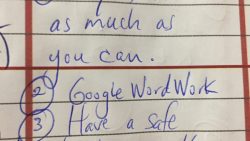 as much as
you can.
2 Google WordWork
3 Have a safe